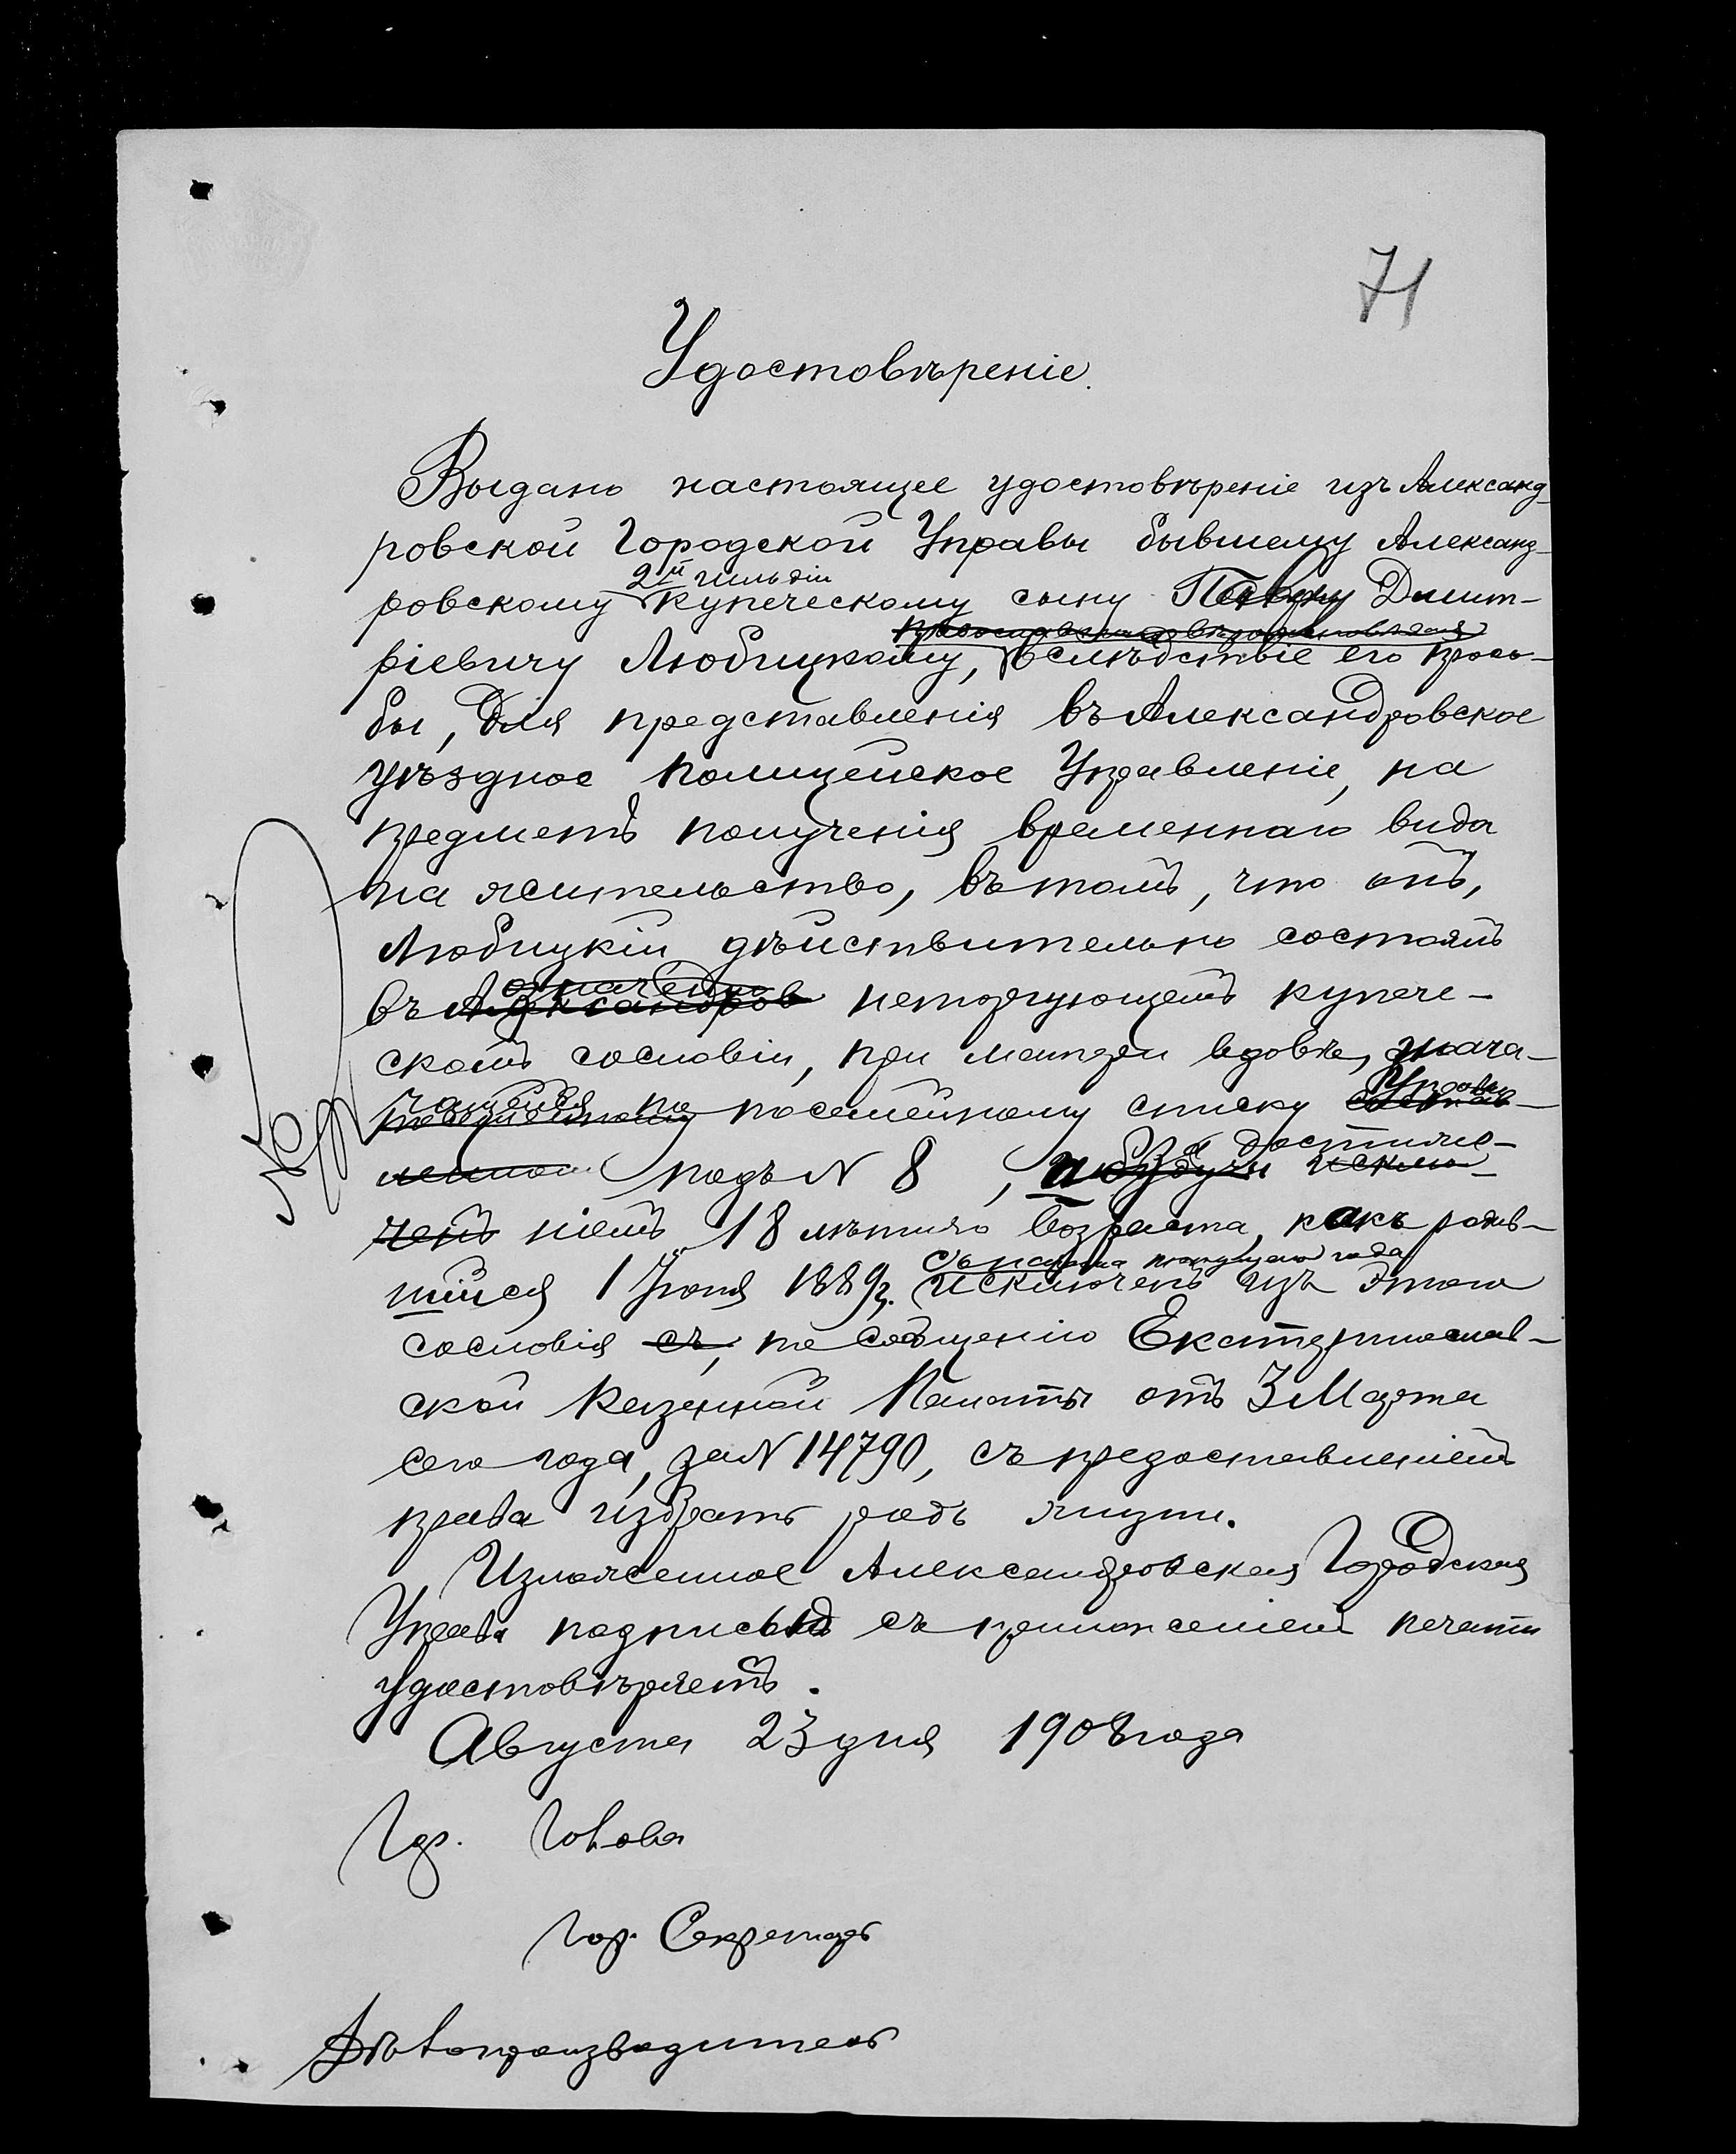 71
Удостовѣреніе.
Выдано настоящее удостовѣреніе изъ Александ-
ровской Городской Управы бывшему Александ-
2й гильдіи
ровскому купеческому сыну Дмит-
православнаго вѣроисповѣданія
ріевичу Любицкому, вслѣдствіе его прось-
бы, для представленія въ Александровское
уѣздное полицейское Управленіе, на
предметъ полученія временнаго вида
на жительство, въ томъ, что онъ,
Любицкій дѣйствительно состоялъ
означен
въ Александров неторгующемъ купече-
скомъ сословіи, при матери вдовѣ, знача-
чащейся по Управы
посемейному списку состав-
За достиже-
леннои подъ N 8, а будучи исклю-
ченъ ніемъ 18 лѣтняго возраста, какъ родив-
съ начала текущаго года
шійся 1 Іюня 1889 г. исключенъ изъ этого
сословія съ, по сообщенію Екатеринослав-
ской Казенной Палаты отъ 3 Марта
сего года, за N 14790, съ предоставленіемъ
права избрать родъ жизни.
Изложенное Александровская Городская
Управа подписью съ приложеніемъ печати
удостовѣряетъ.
Августа 23 дня 1908 года
Гор. Голова
Гор. Секретарь
Дѣлопроизводитель